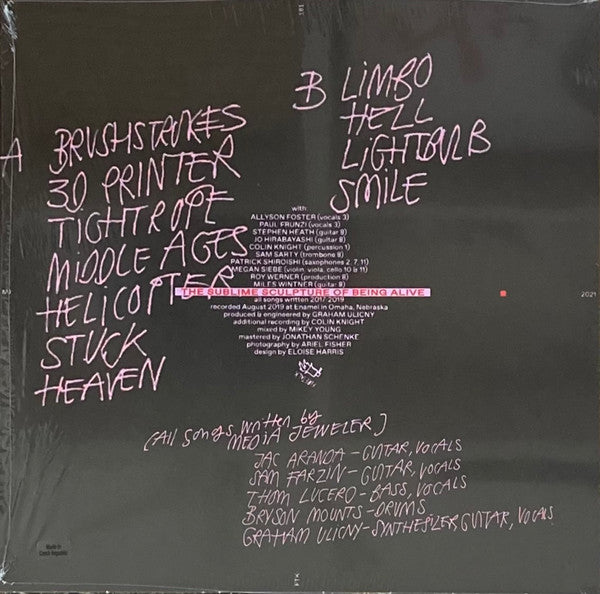 A
BRUSHSTROKES
3D PRINTER
TIGHTROPE
MIDDLE AGES
HELICOPTER
STUCK
HEAVEN
B
LIMBO
HELL
LIGHTBULB
SMILE
with:
ALLYSON FOSTER (vocals 3)
PAUL FRUNZI (vocals 3)
STEPHEN HEATH (guitar 9)
JO HIRABAYASHI (guitar 8)
COLIN KNIGHT (percussion 1)
SAM SARTY (trombone 8)
PATRICK SHIROISHI (saxophones 2, 7, 11)
MEGAN SIEBE (violin, viola, cello 10 & 11)
ROY WERNER (production 8)
MILES WINTNER (guitar 8)
THE SUBLIME SCULPTURE OF BEING ALIVE
all songs written 2017-2019
recorded August 2019 at Enamel in Omaha, Nebraska
produced & engineered by GRAHAM ULICNY
additional recording by COLIN KNIGHT
mixed by MIKEY YOUNG
mastered by JONATHAN SCHENKE
photography by ARIEL FISHER
design by ELOISE HARRIS
2021
(All songs written by
MEDIA JEWELER)
JAC ARANDA-GUITAR, VOCALS
SAM FARZIN-GUITAR, VOCALS
THOM LUCERO-BASS, VOCALS
BRYSON MOUNTS-DRUMS
GRAHAM ULICNY-SYNTHESIZER GUITAR, VOCALS
Made in
Czech Republic